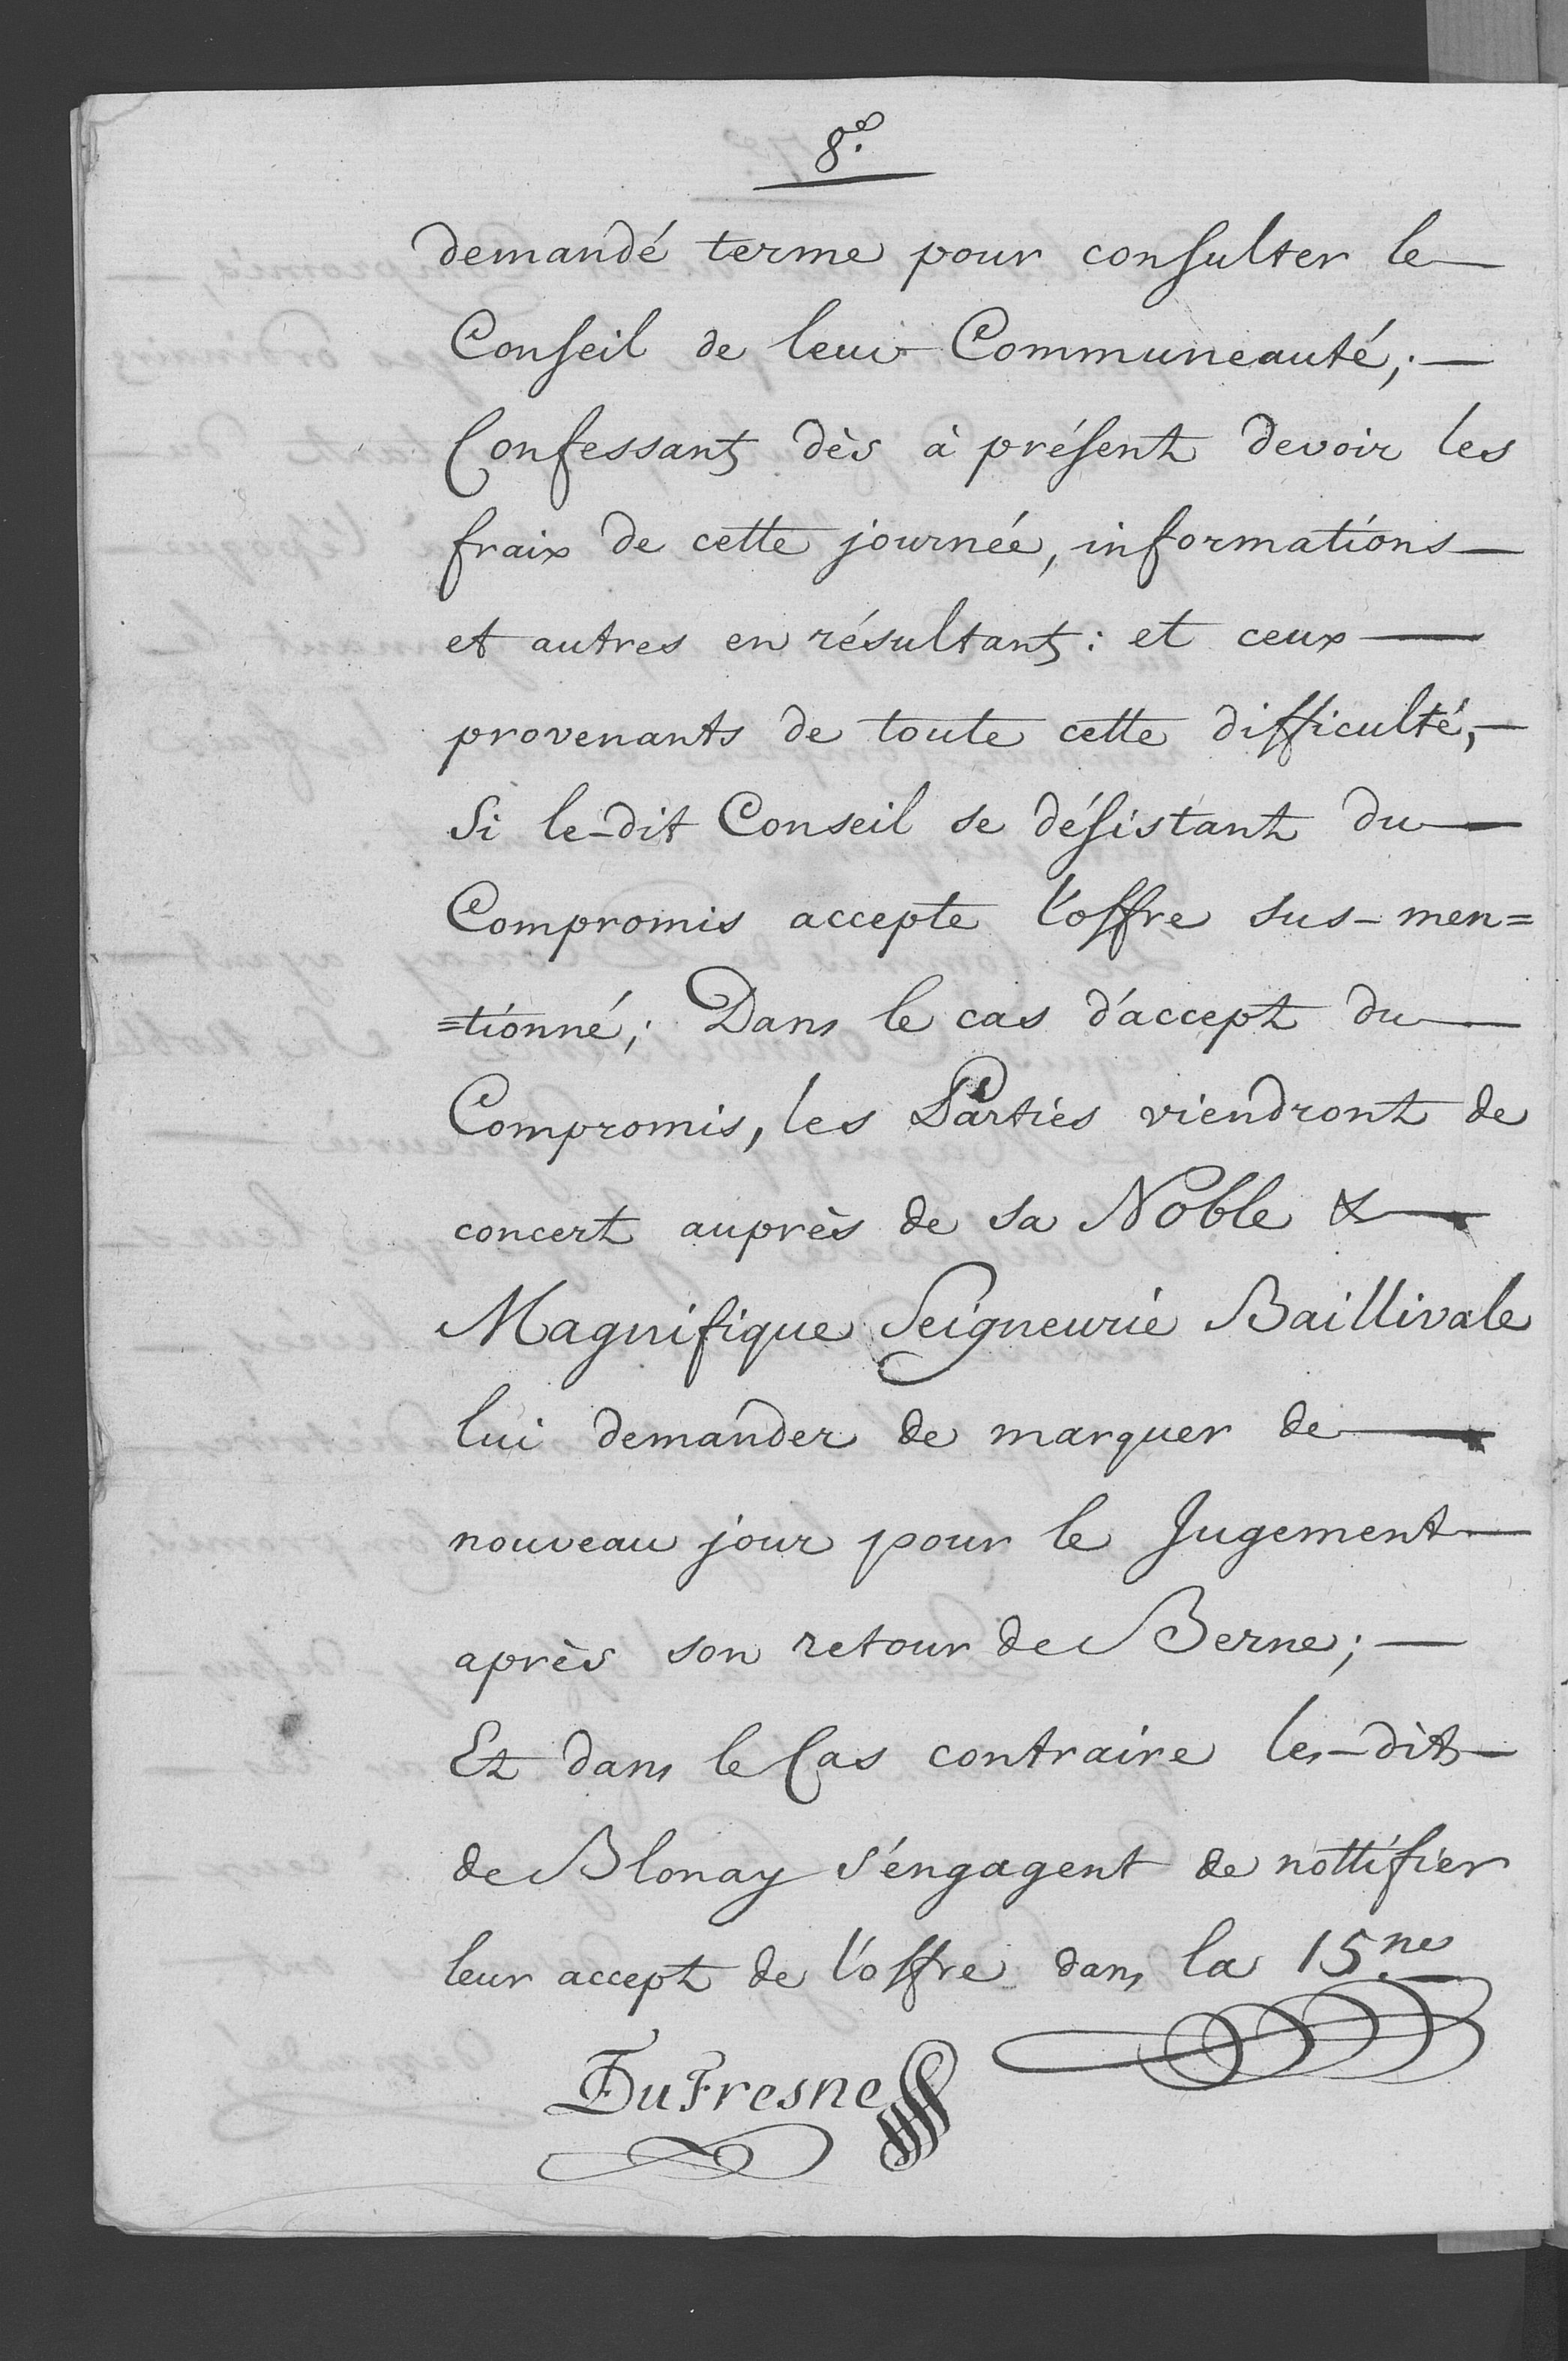 8.e
demandé terme pour consulter le —
Conseil de leur Communeauté; —
Confessant dès à présent devoir les
fraix de cette journée, informations —
et autres en résultant: et ceux —
provenants de toute cette difficulté, —
Si le-dit Conseil se désistant du —
Compromis accepte l'offre sus-men=
=tionné; Dans le cas d'accept du —
Compromis, les Parties viendront de
concert auprès de sa Noble & —
Magnifique Seigneurie Baillivale
lui demander de marquer de —
nouveau jour pour le Jugement —
après son retour de Berne; —
Et dans le Cas contraire les-dits —
de Blonay s'engagent de nottifier
leur accept de l'offre dans la 15.ne
DuFresne